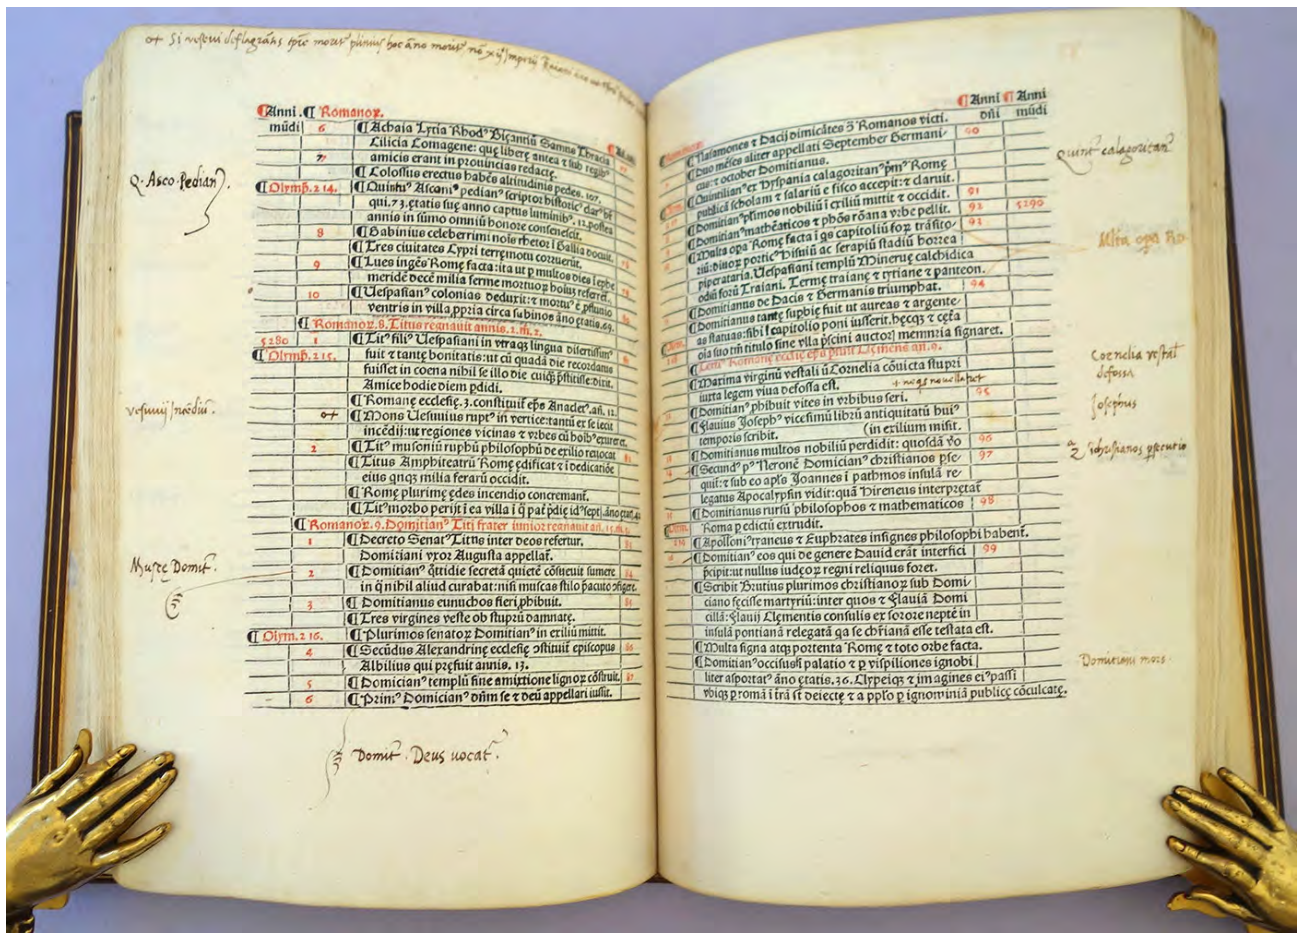 Si vesevi deflagratis
¶Anni .¶ Romanoꝝ.
mūdi 6 ¶Achaia Lycia Rhodꝰ Biçantiū Samus Thracia
Cilicia Comagene: quę liberę antea ⁊ sub regibꝰ
7 amicis erant in prouincias redactę.
¶Colossus erectus habēs altitudinis pedes. 107.
Q. Asco. Pedianꝰ.
¶Olymp̄. 2 14. ¶Quintꝰ Asconiꝰ pedianꝰ scriptor historicꝰ
qui. 73. ętatis suę anno captus luminibꝰ. 12. postea
annis in sūmo omniū honore consenescit.
8 ¶Gabinius celeberrimi nois rhetor ī Gallia docuit.
¶Tres ciuitates Cypri terręmotu corruerūt.
9 ¶Lues ingēs Romę facta: ita ut ꝑ multos dies ī ephe
meridē decē milia ferme mortuoꝝ
10 ¶Uespasianꝰ colonias deduxit: ⁊ mortuꝰ ē
ventris in villa ꝓpria circa sabinos āno ętatis. 69.
¶Romanoꝝ. 8. Titus regnauit annis. 2. m. 2.
5280 1 ¶Titꝰ filiꝰ Uespasiani in vtraqꝫ lingua disertissimꝰ
¶Olymp̄. 2 15. fuit ⁊ tantę bonitatis: ut cū quadā die recordatus
fuisset in coena nihil se illo die cuiqꝫ p̄stitisse: dixit.
Amice hodie diem ꝑdidi.
¶Romanę ecclesię. 3. constituit̄ ep̄s Anacletꝰ. añ. 12.
vesuuij incēdiū.
¶Mons Uesuuius ruptꝰ in vertice: tantū ex se iecit
incēdij: ut regiones vicinas ⁊ vrbes cū hoībꝰ exureret.
2 ¶Titꝰ musoniū ruphū philosophū de exilio reuocat
¶Titus Amphiteatrū Romę ędificat ⁊ ī dedicatiōe
eius qnqꝫ milia ferarū occidit.
¶Romę plurimę ędes incendio concremant̄.
¶Titꝰ morbo perijt ī ea villa ī q̄ pat̄
¶Romanoꝝ. 9. Domitianꝰ Titi frater iunior regnauit añ. 15. m. 5.
1 ¶Decreto Senatꝰ Titus inter deos refertur.
Domitiani vxor Augusta appellat̄.
Muscę Domit̄.
2 ¶Domitianꝰ q̄ttidie secretā quietē cōsueuit sumere 84
in q̄ nihil aliud curabat: nisi muscas stilo p̄acuto
3 ¶Domitianus eunuchos fieri ꝓhibuit. 85
¶Tres virgines vestę ob stuprū damnatę.
¶Olym. 2 16. ¶Plurimos senatoꝝ Domitianꝰ in exiliū mittit.
4 ¶Secūdus Alexandrinę ecclesię ꝯstituit̄ episcopus 86
Albilius qui pręfuit annis. 13.
5 ¶Domicianꝰ templū sine amixtione lignoꝝ cōstruit. 87
6 ¶Primꝰ Domicianꝰ dn̄m se ⁊ deū appellari iussit.
Domit̄. Deus vocat̄.
¶Anni ¶Anni
dn̄i mūdi
¶Nasamones ⁊ Dacij dimicātes ꝯ̄ Romanos victi.
¶Duo mēses aliter appellati September Germani 90
cus: ⁊ october Domitianus.
Quint̄ calagoritanꝰ
¶Quintilianꝰ ex Hyspania calagoritanꝰ pm̄ꝰ Romę
publicā scholam ⁊ salariū e fisco accepit: ⁊ claruit.
¶Domitianꝰ p̄limos nobiliū ī exiliū mittit ⁊ occidit. 91
¶Domitianꝰ mathēaticos ⁊ phōs rōana vrbe pellit. 92 5290
¶Multa opa Romę facta 93
Mlta opa Ro
riū: diuoꝝ porticꝰ Hisuiū ac serapiū stadiū horrea
piperataria. Uespasiani templū Mineruę calchidica
odiū forū Traiani. Termę traianę ⁊ tyrianę ⁊ panteon.
¶Domitianus de Dacis ⁊ Germanis triumphat. 94
¶Domitianus tantę supbię fuit ut aureas ⁊ argente
as statuas: sibi ī capitolio poni iusserit.
oia suo tm̄ titulo sine vlla p̄scini auctoꝝ memoria signaret.
Romanę ecclię ep̄s Clemens an. 9.
Cornelia vestal̄
defossa
¶Maxima virginū vestaliū Cornelia cōuicta stupri
iuxta legem viua defossa est.
¶Domitianꝰ ꝓhibuit vites in vrbibus seri. 95
Josephus
¶Flauius Josephꝰ vicesimū librū antiquitatū huiꝰ
temporis scribit. (in exilium misit.
¶Domitianus multos nobiliū perdidit: quosdā vo 96
christianos ꝑsecutio
¶Secundꝰ pꝰ Neronē Domicianꝰ christianos pse 97
quit̄: ⁊ sub eo apl̄s Joannes ī pathmos insulā re
legatus Apocalypsin vidit: quā Hireneus interpretat̄
¶Domitianus rursū philosophos ⁊ mathematicos 98
Roma p edictū extrudit.
¶Apolloniꝰ tyaneus ⁊ Euphrates insignes philosophi habent̄.
¶Domitianꝰ eos qui de genere Dauid erāt interfici 99
p̄cipit: ut nullus iudęoꝝ regni reliquus foret.
¶Scribit Brutius plurimos christianoꝝ sub Domi
ciano fecisse martyriū: inter quos ⁊ Flauiā Domi
cillā: Flauij Clementis consulis ex sorore neptē in
insulā pontianā relegatā qa se chr̄ianā esse testata est.
¶Multa signa atqꝫ portenta Romę ⁊ toto orbe facta.
Domitiani mors
¶Domitianꝰ occisus ī palatio ⁊ ꝑ vispiliones ignobi
liter asportatꝰ āno ętatis. 36. Clypeiqꝫ ⁊ imagines eiꝰ passī
vbiqꝫ deiectę ⁊ a pplo ꝑ ignominiā publicę cōculcatę.